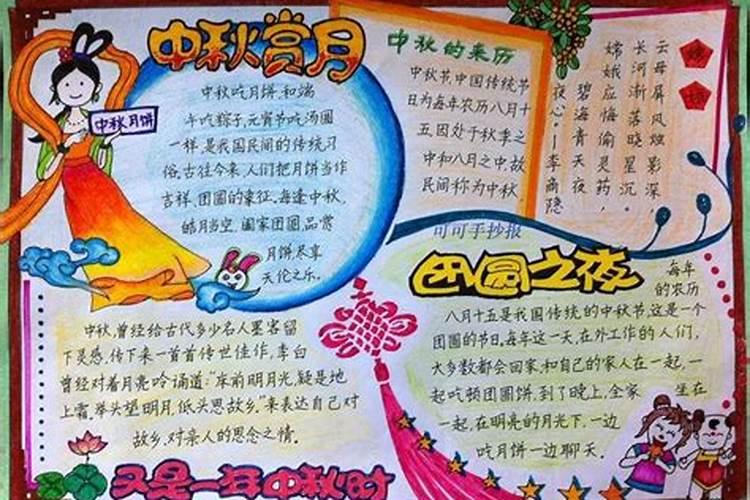 中秋赏月
中秋月饼
中秋吃月饼,和端
午吃粽子,元宵节吃汤圆
一样,是我国民间的传统习
俗,古往今来,人们把月饼当作
吉祥、团圆的象征,每逢中秋,
皓月当空,阖家团圆,品赏
月饼尽享
天伦之乐。
中秋的来历
中秋节中国传统节
日为每年农历八月十
五,因处于秋季之
中和八月之中,故
民间称为中秋
嫦娥
云母屏风烛影深,
长河渐落晓星沉。
嫦娥应悔偷灵药,
碧海青天夜
夜心。——李商隐
可可手抄报
团圆之夜
每年
的农历
八月十五是我国传统的中秋节,这是一个
团圆的节日,每年这一天,在外工作的人们,
大多数都会回家,和自己的家人在一起,一
起吃顿团圆饼,到了晚上,全家 坐在
一起,在明亮的月光下,一边
吃月饼一边聊天。
中秋,曾经给古代多少名人墨客留
下灵感,传下来一首首传世佳作,李白
曾经对着月亮吟诵道:“床前明月光,疑是地
上霜,举头望明月,低头思故乡。”来表达自己对
故乡,对亲人的思念之情。
又是一年中秋时